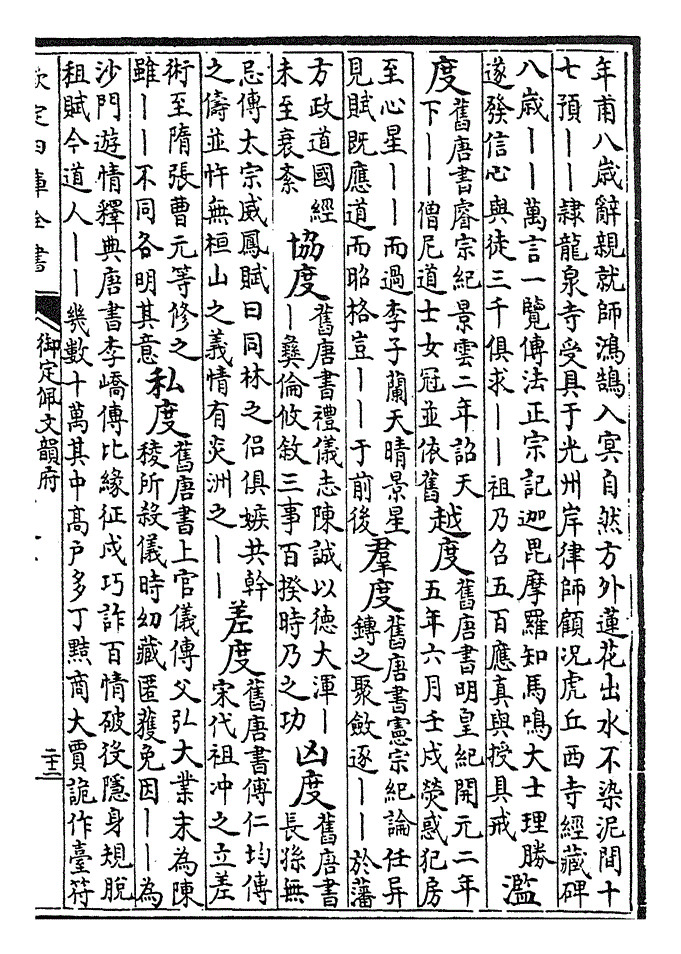 年甫八歳辭親就師鴻鵠入冥自然方外蓮花出水不染泥間十
七預｜｜隷龍泉寺受具于光州岸律師顧况虎丘西寺經藏碑
八歳｜｜萬言一覽傳法正宗記迦毘摩羅知馬鳴大士理勝
遂發信心與徒三千俱求｜｜祖乃召五百應真與授具戒
濫
度
舊唐書睿宗紀景雲二年詔天
下｜｜僧尼道士女冠並依舊
越度
舊唐書明皇紀開元二年
五年六月壬戌熒惑犯房
至心星｜｜而過李子蘭天晴景星
見賦既應道而昭格豈｜｜于前後
羣度
舊唐書憲宗紀論任异
鏄之聚斂逐｜｜於藩
方政道國經
未至衰紊
協度
舊唐書禮儀志陳誠以德大渾｜
｜彝倫攸敘三事百揆時乃之功
凶度
舊唐書
長孫無
忌傳太宗威鳳賦曰同林之侣俱嫉共幹
之儔並忤無桓山之義情有炎洲之｜｜
差度
舊唐書傅仁均傳
宋代祖冲之立差
術至隋張曹元等修之
雖｜｜不同各明其意
私度
舊唐書上官儀傳父弘大業末為陳
稜所殺儀時幼藏匿獲免因｜｜為
沙門遊情釋典唐書李嶠傳比緣征戍巧詐百情破役隱身規脱
租賦今道人｜｜幾數十萬其中髙户多丁黠商大賈詭作臺符
欽定四庫全書
御定佩文韻府
二十三